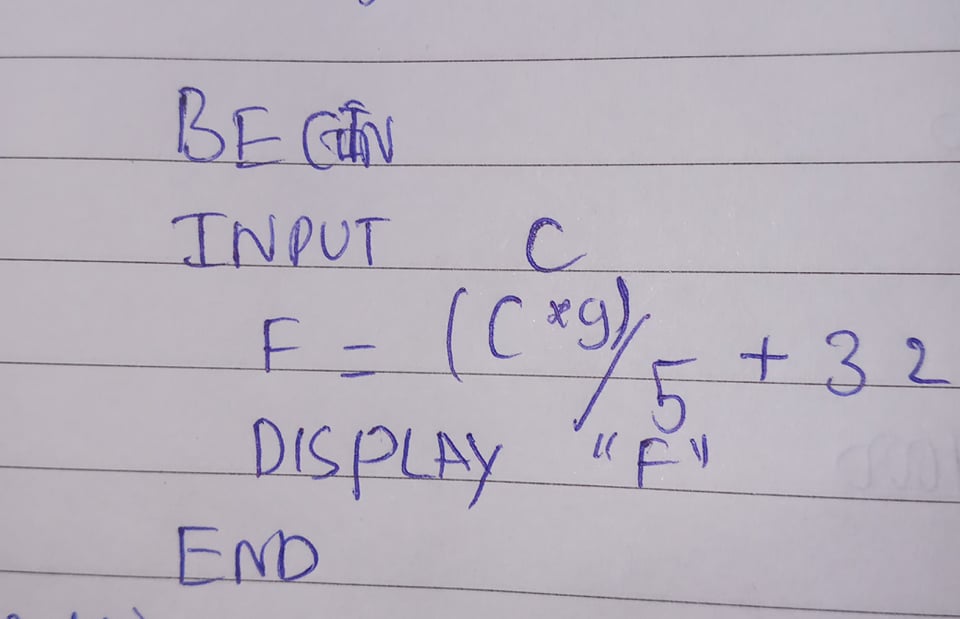 BEGIN
INPUT C
F = (C*9)/5 + 32
DISPLAY "F"
END